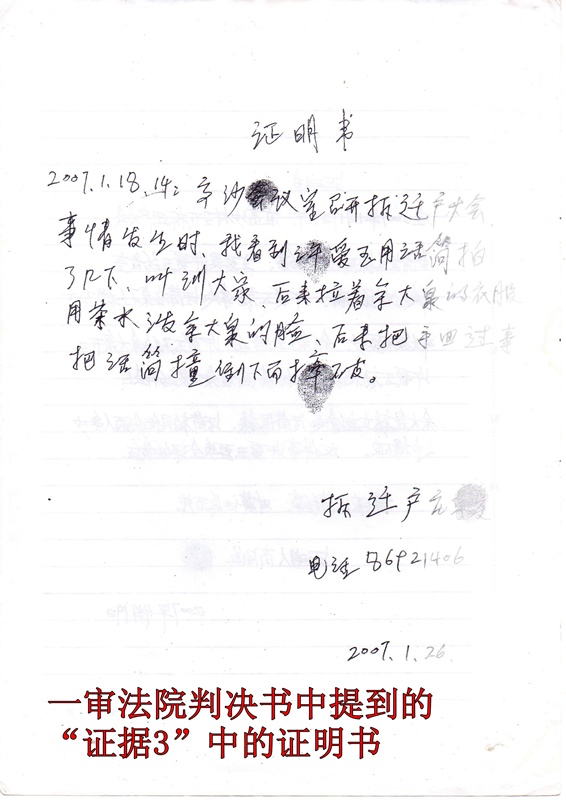 证明书
2007.1.18.14: 辛沙会议室召开拆迁户大会
事情发生时、我看到许爱玉用话筒拍
了几下、叫训大家、后来拉着余大泉的衣服
用茶水泼余大泉的脸、后来把手回过来
把话筒撞倒下而摔破。
拆迁户
电话 86921406
2007.1.26
一审法院判决书中提到的
“证据3”中的证明书